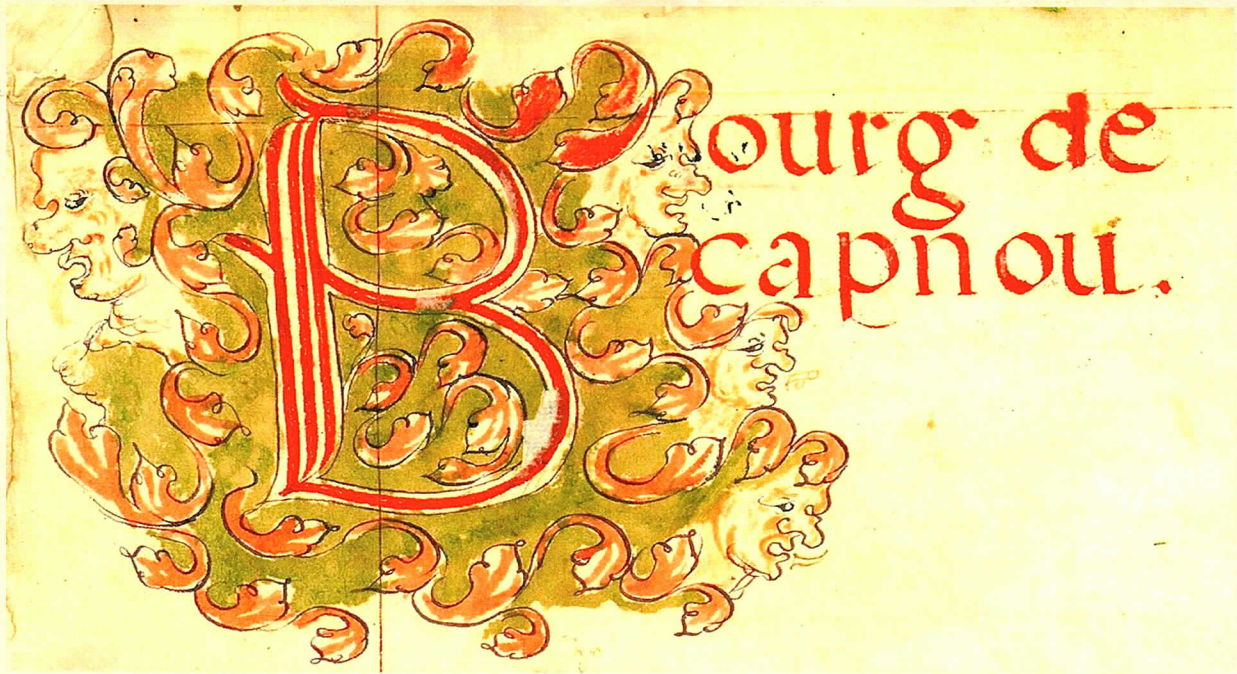 Bourg de
capnou.